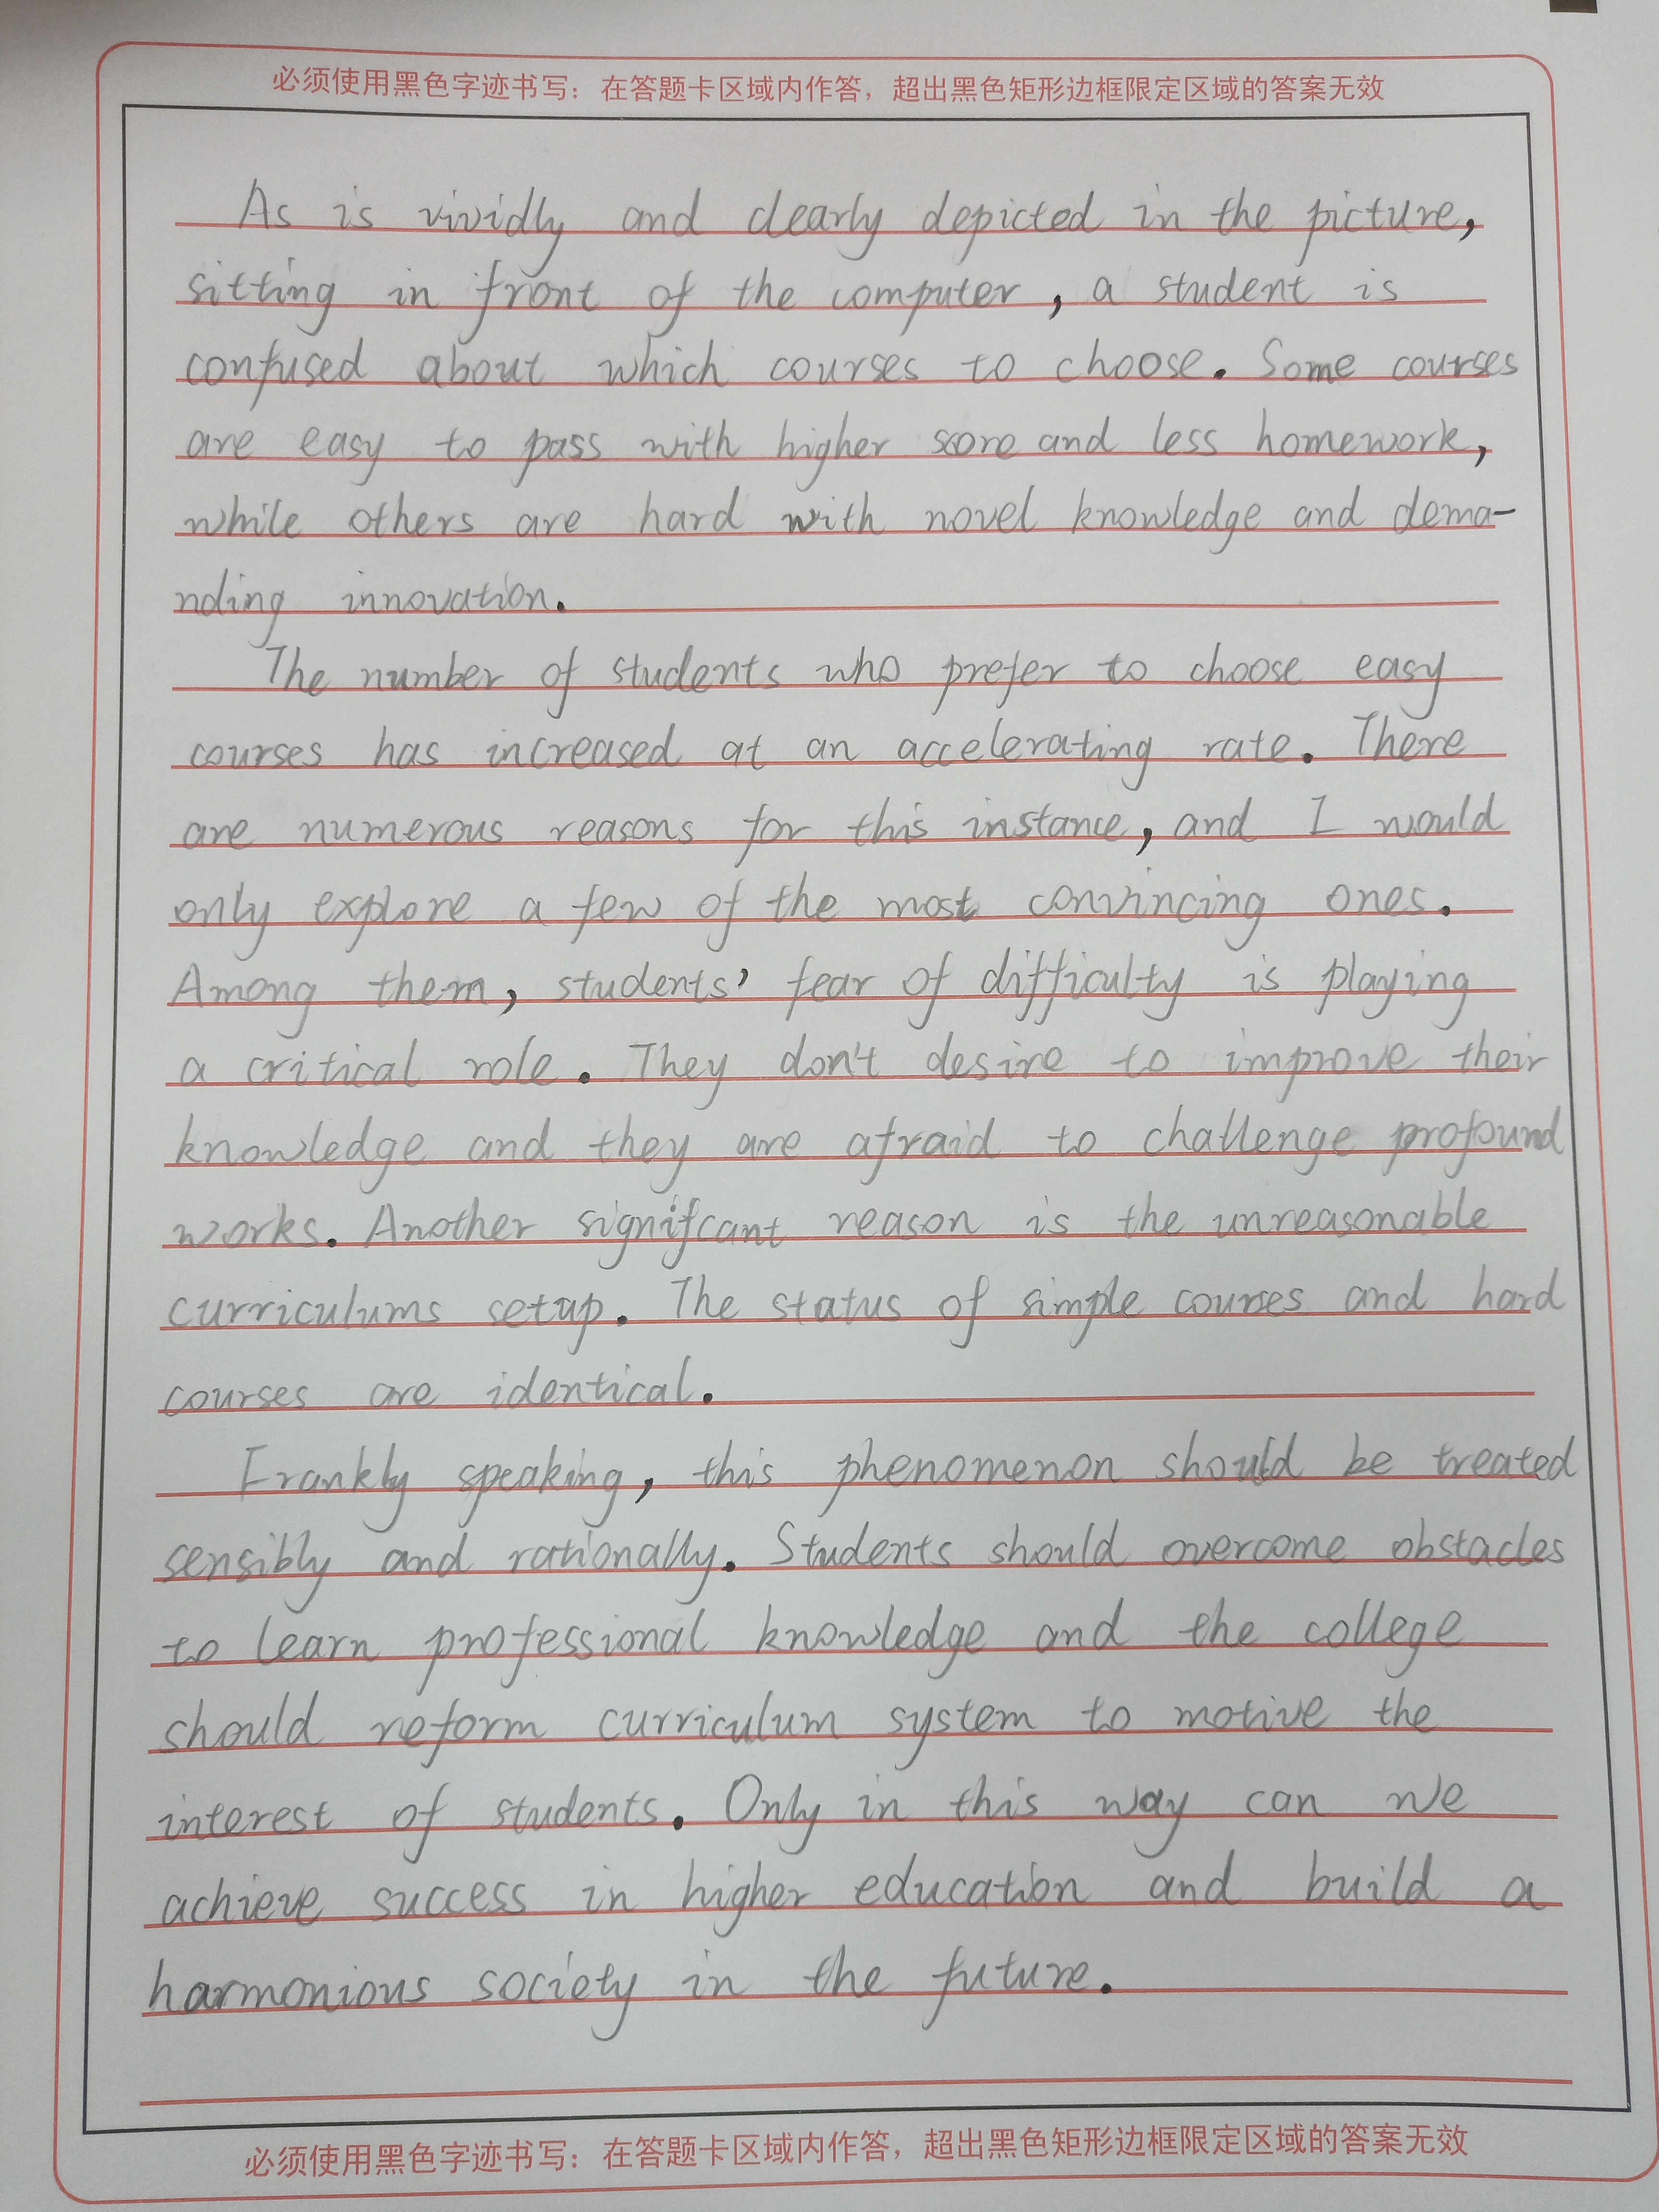 必须使用黑色字迹书写：在答题卡区域内作答，超出黑色矩形边框限定区域的答案无效
As is vividly and clearly depicted in the picture,
sitting in front of the computer, a student is
confused about which courses to choose. Some courses
are easy to pass with higher score and less homework,
while others are hard with novel knowledge and dema-
nding innovation.
The number of students who prefer to choose easy
courses has increased at an accelerating rate. There
are numerous reasons for this instance, and I would
only explore a few of the most convincing ones.
Among them, students' fear of difficulty is playing
a critical role. They don't desire to improve their
knowledge and they are afraid to challenge profound
works. Another signifcant reason is the unreasonable
curriculums setup. The status of simple courses and hard
courses are identical.
Frankly speaking, this phenomenon should be treated
sensibly and rationally. Students should overcome obstacles
to learn professional knowledge and the college
should reform curriculum system to motive the
interest of students. Only in this way can we
achieve success in higher education and build a
harmonious society in the future.
必须使用黑色字迹书写：在答题卡区域内作答，超出黑色矩形边框限定区域的答案无效